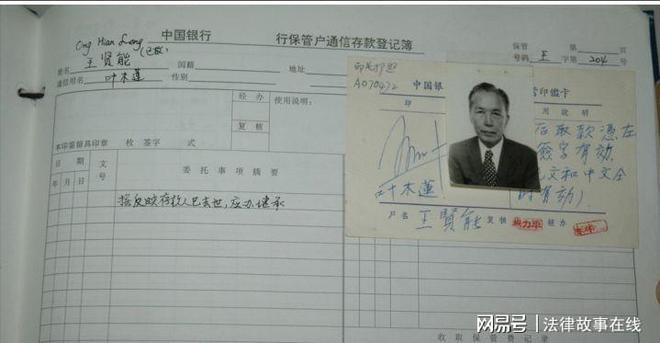 Ong Hian Leng
(已故)
中国银行 行保管户通信存款登记簿
户名 王贤能 国籍 地址
保管 第 页
号码 王 字第 204 号
通信用名 叶木莲 性别
经办
复核
使用说明：
本印鉴留具印章 枚 签字 式
日期
年 月 日
文号
委托事项摘要
据反映存款人已去世，应办继承
A070472
中国银
管印鉴卡
印
用说明
后取款凭左
签字有效.
文和中文全
时有效)
叶木莲
户名 王贤能 复核 经办
收取保管费记录
网易号 | 法律故事在线